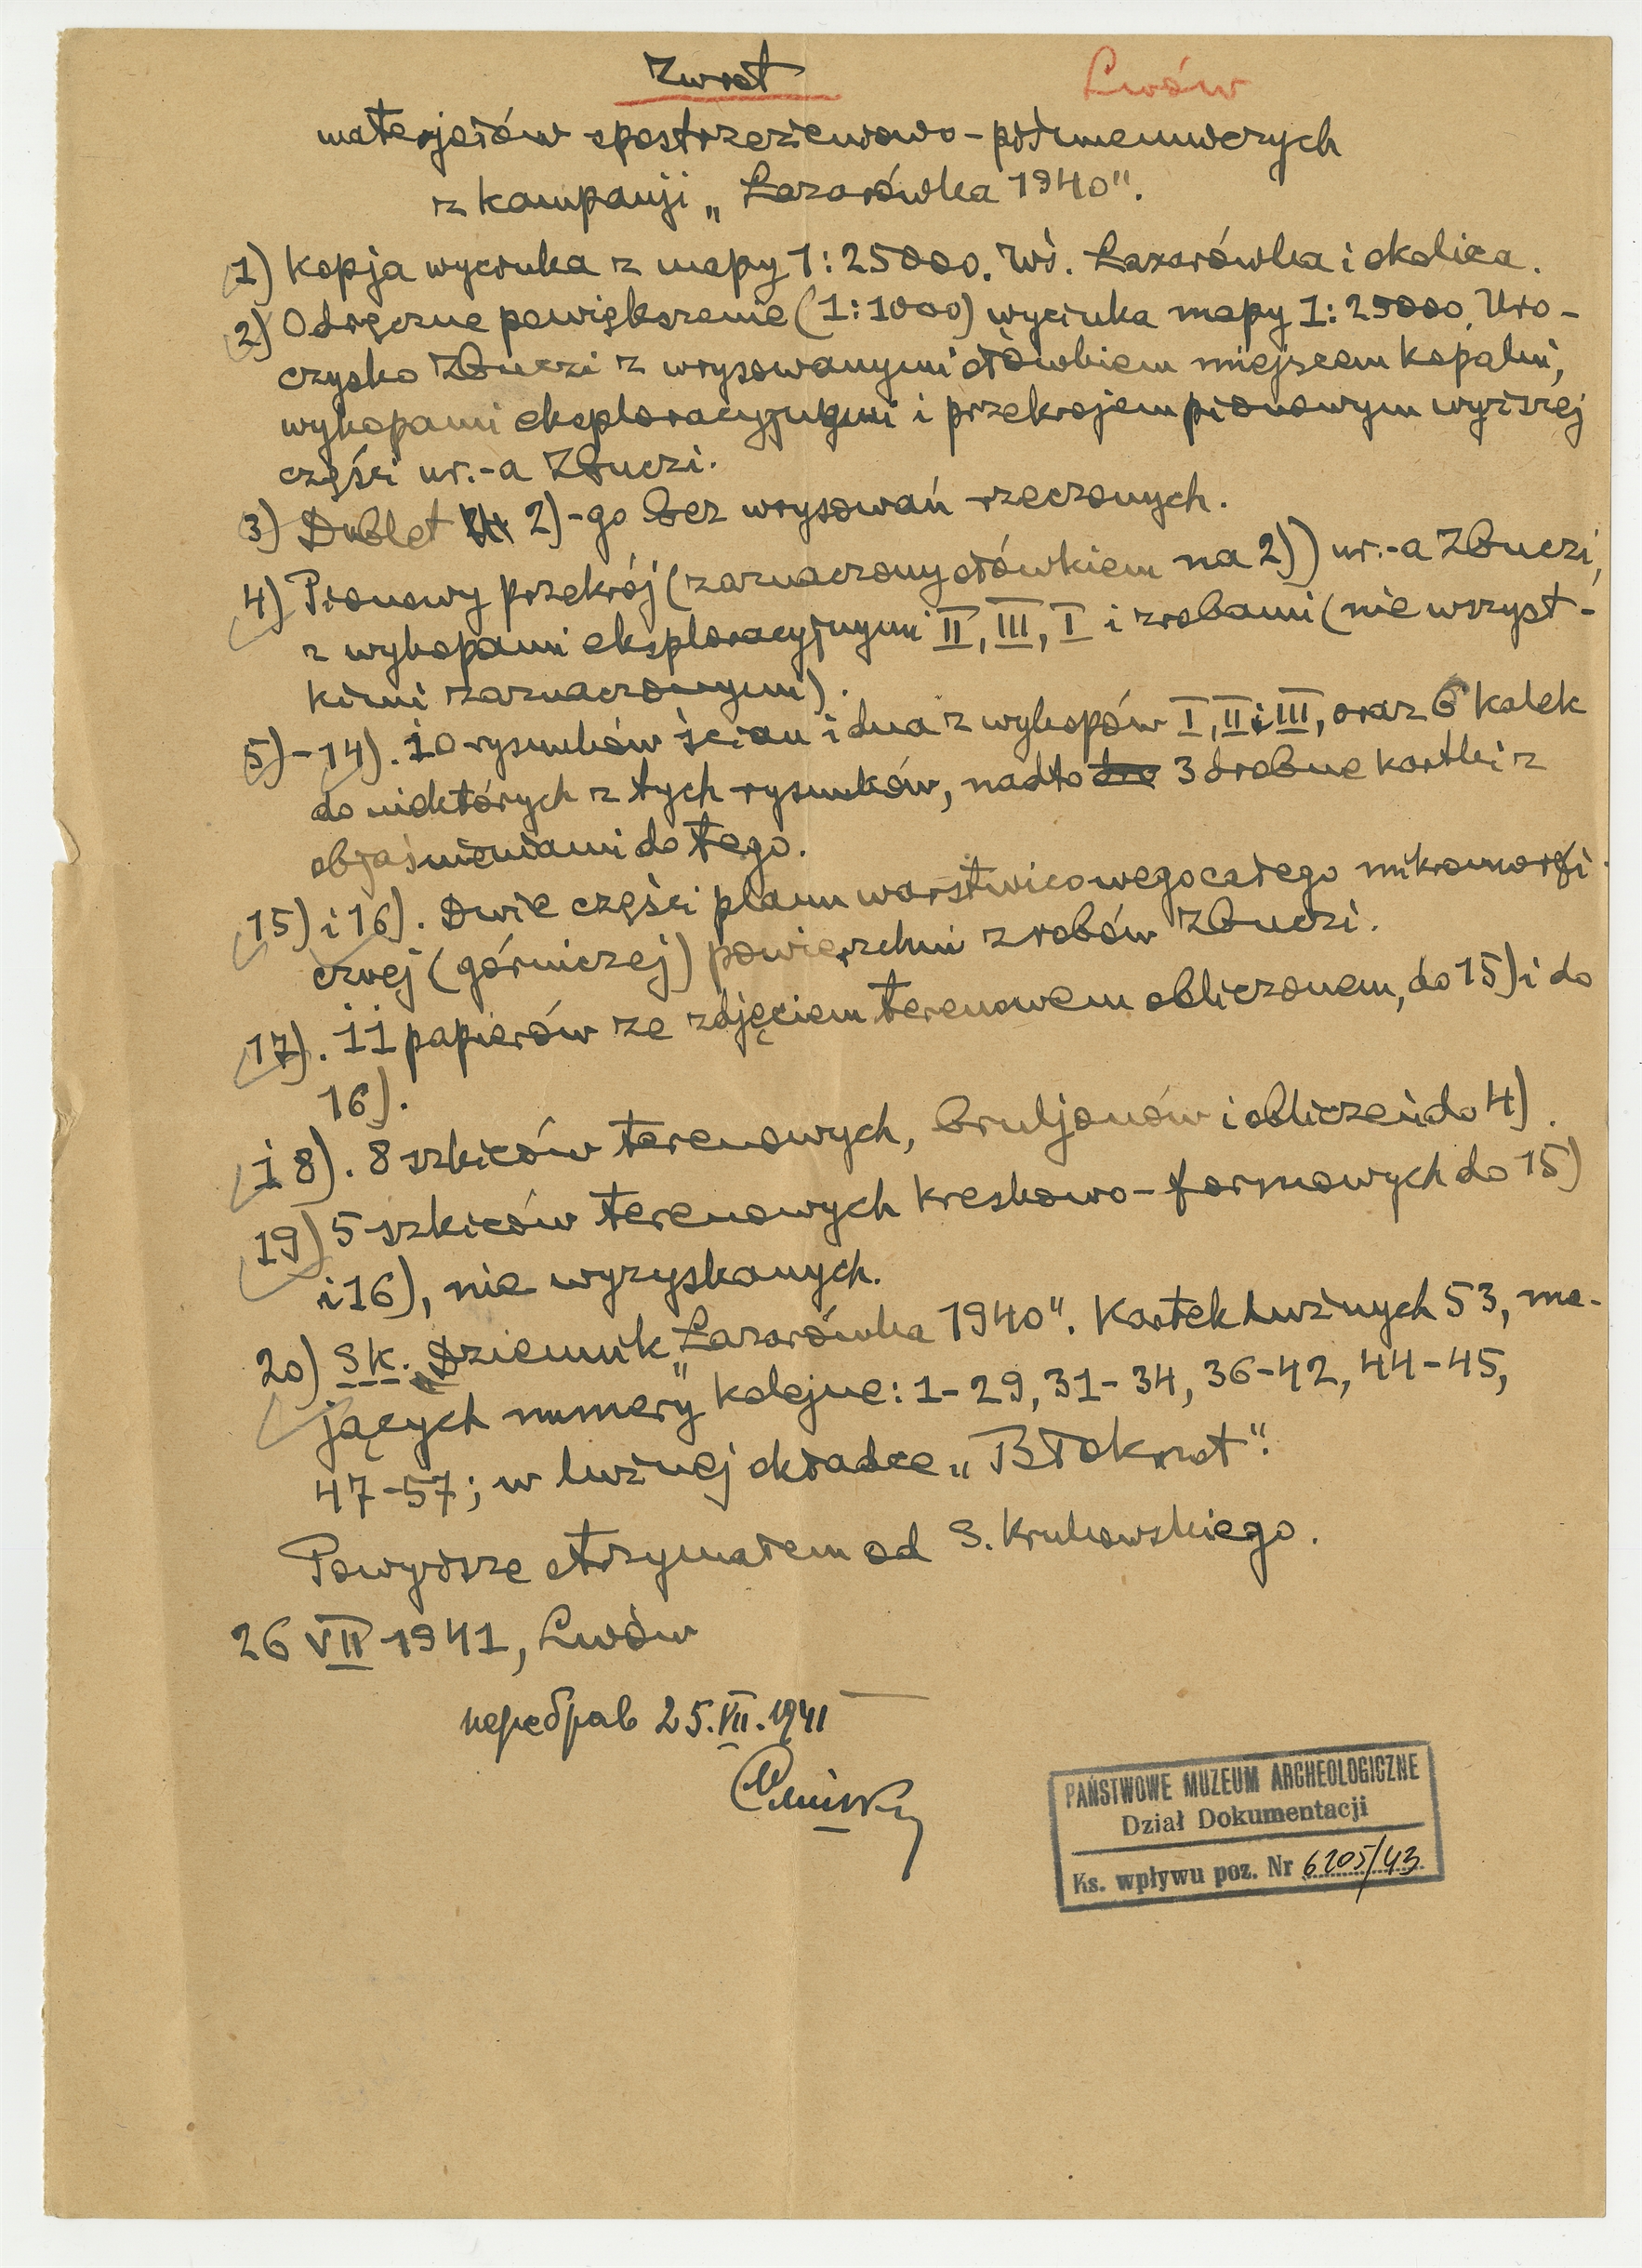 Zwrot
Lwów
materjałów spostrzeżeniowo-piśmienniczych
z kampanji „Łazarówka 1940".
1) Kopja wycinka z mapy 1:25000. Wś. Łazarówka i okolica.
2) Odręczne powiększenie (1:1000) wycinka mapy 1:25000. Uro-
czysko Zbuczi z wrysowanymi ołówkiem miejscem kopalni,
wykopami eksploracyjnymi i przekrojem pionowym wyższej
części ur.-a Zbuczi.
3) Dublet 2)-go bez wrysowań rzeczonych.
4) Pionowy przekrój (zaznaczony ołówkiem na 2)) ur.-a Zbuczi,
z wykopami eksploracyjnymi II, III, I i zrobami (nie wszyst-
kimi zaznaczonymi).
5)-14). 10 rysunków ścian i dna z wykopów I, II i III, oraz 6 kalek
do niektórych z tych rysunków, nadto 3 drobne kartki z
objaśnieniami do tego.
15) i 16). Dwie części planu warstwicowego całego mikromorfi-
cznej (górniczej) powierzchni zrobów Zbuczi.
17). 11 papierów ze zdjęciem terenowem obliczonem, do 15) i do
16).
18). 8 szkiców terenowych, bruljonów i obliczeń do 4).
19) 5 szkiców terenowych kreskowo-formowych do 15)
i 16), nie wyzyskanych.
20) SK. „Dziennik Łazarówka 1940". Kartek luźnych 53, ma-
jących numery kolejne: 1-29, 31-34, 36-42, 44-45,
47-57; w luźnej okładce „Błoknot".
Powyższe otrzymałem od S. Krukowskiego.
26 VII 1941, Lwów
перебрав 25.VII.1941
PAŃSTWOWE MUZEUM ARCHEOLOGICZNE
Dział Dokumentacji
Ks. wpływu poz. Nr 6205/43